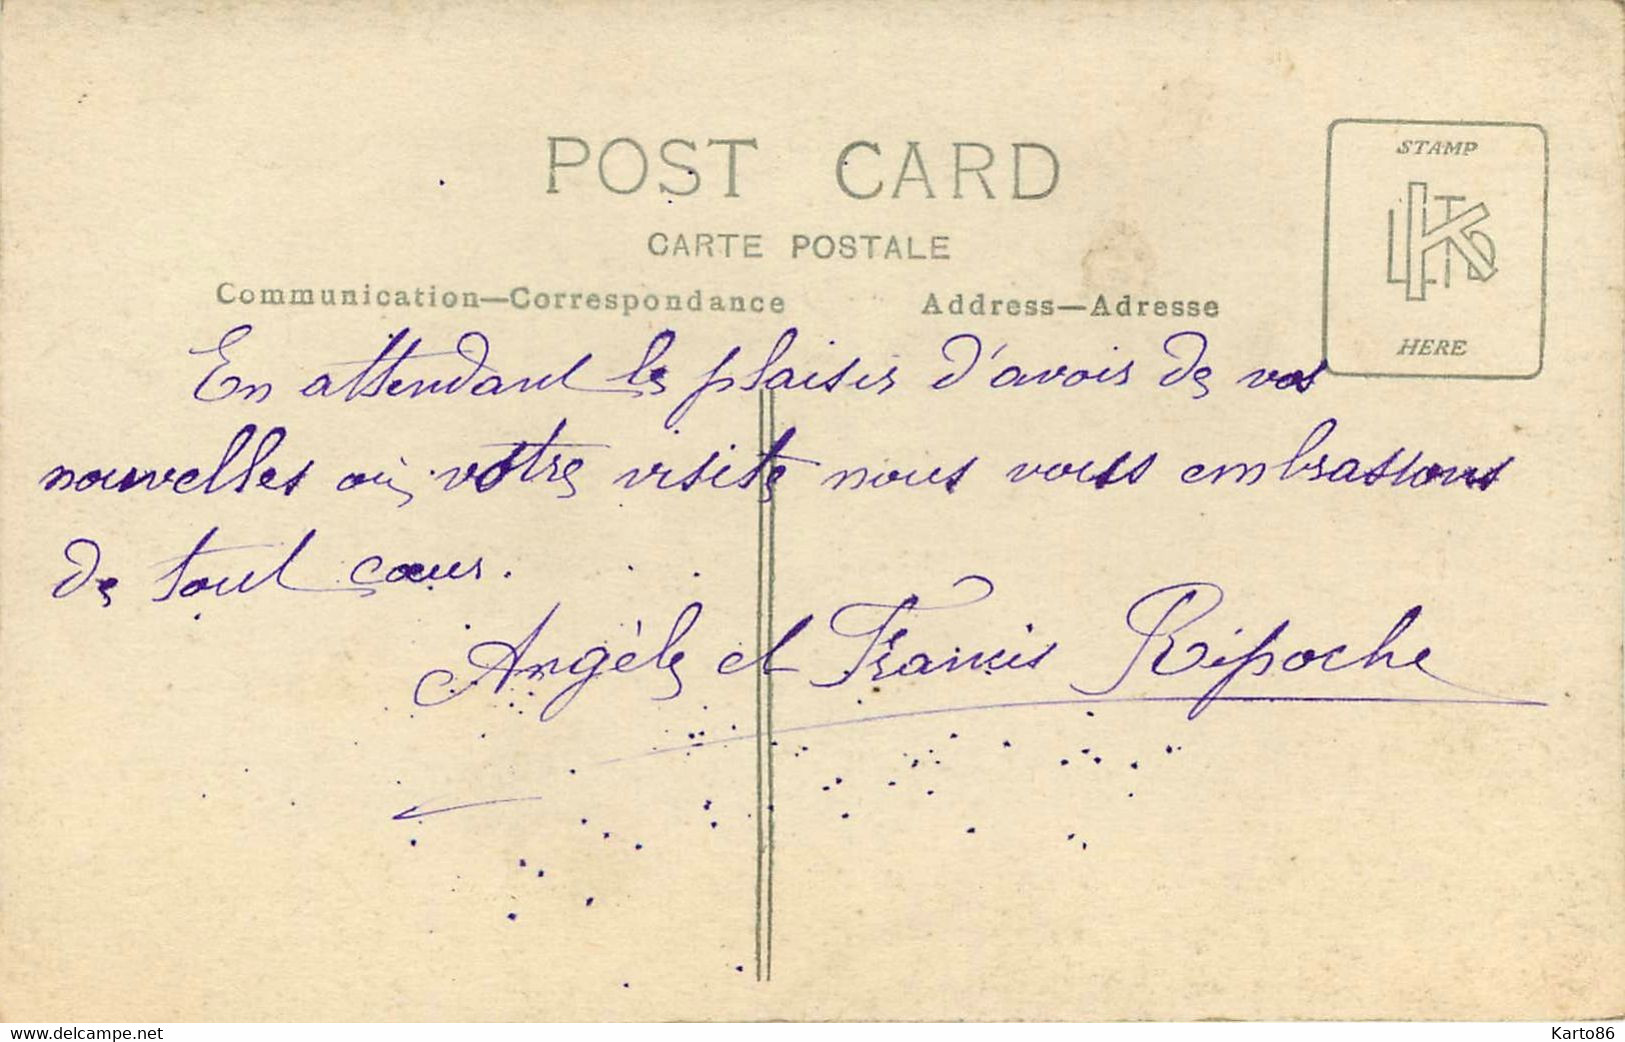 POST CARD
CARTE POSTALE
Communication—Correspondance
Address—Adresse
STAMP
HERE
En attendant le plaisir d'avoir de vos
nouvelles où votre visite nous vous embrassons
de tout cœur.
Angèle et Francis Ripoche
www.delcampe.net
Karto86